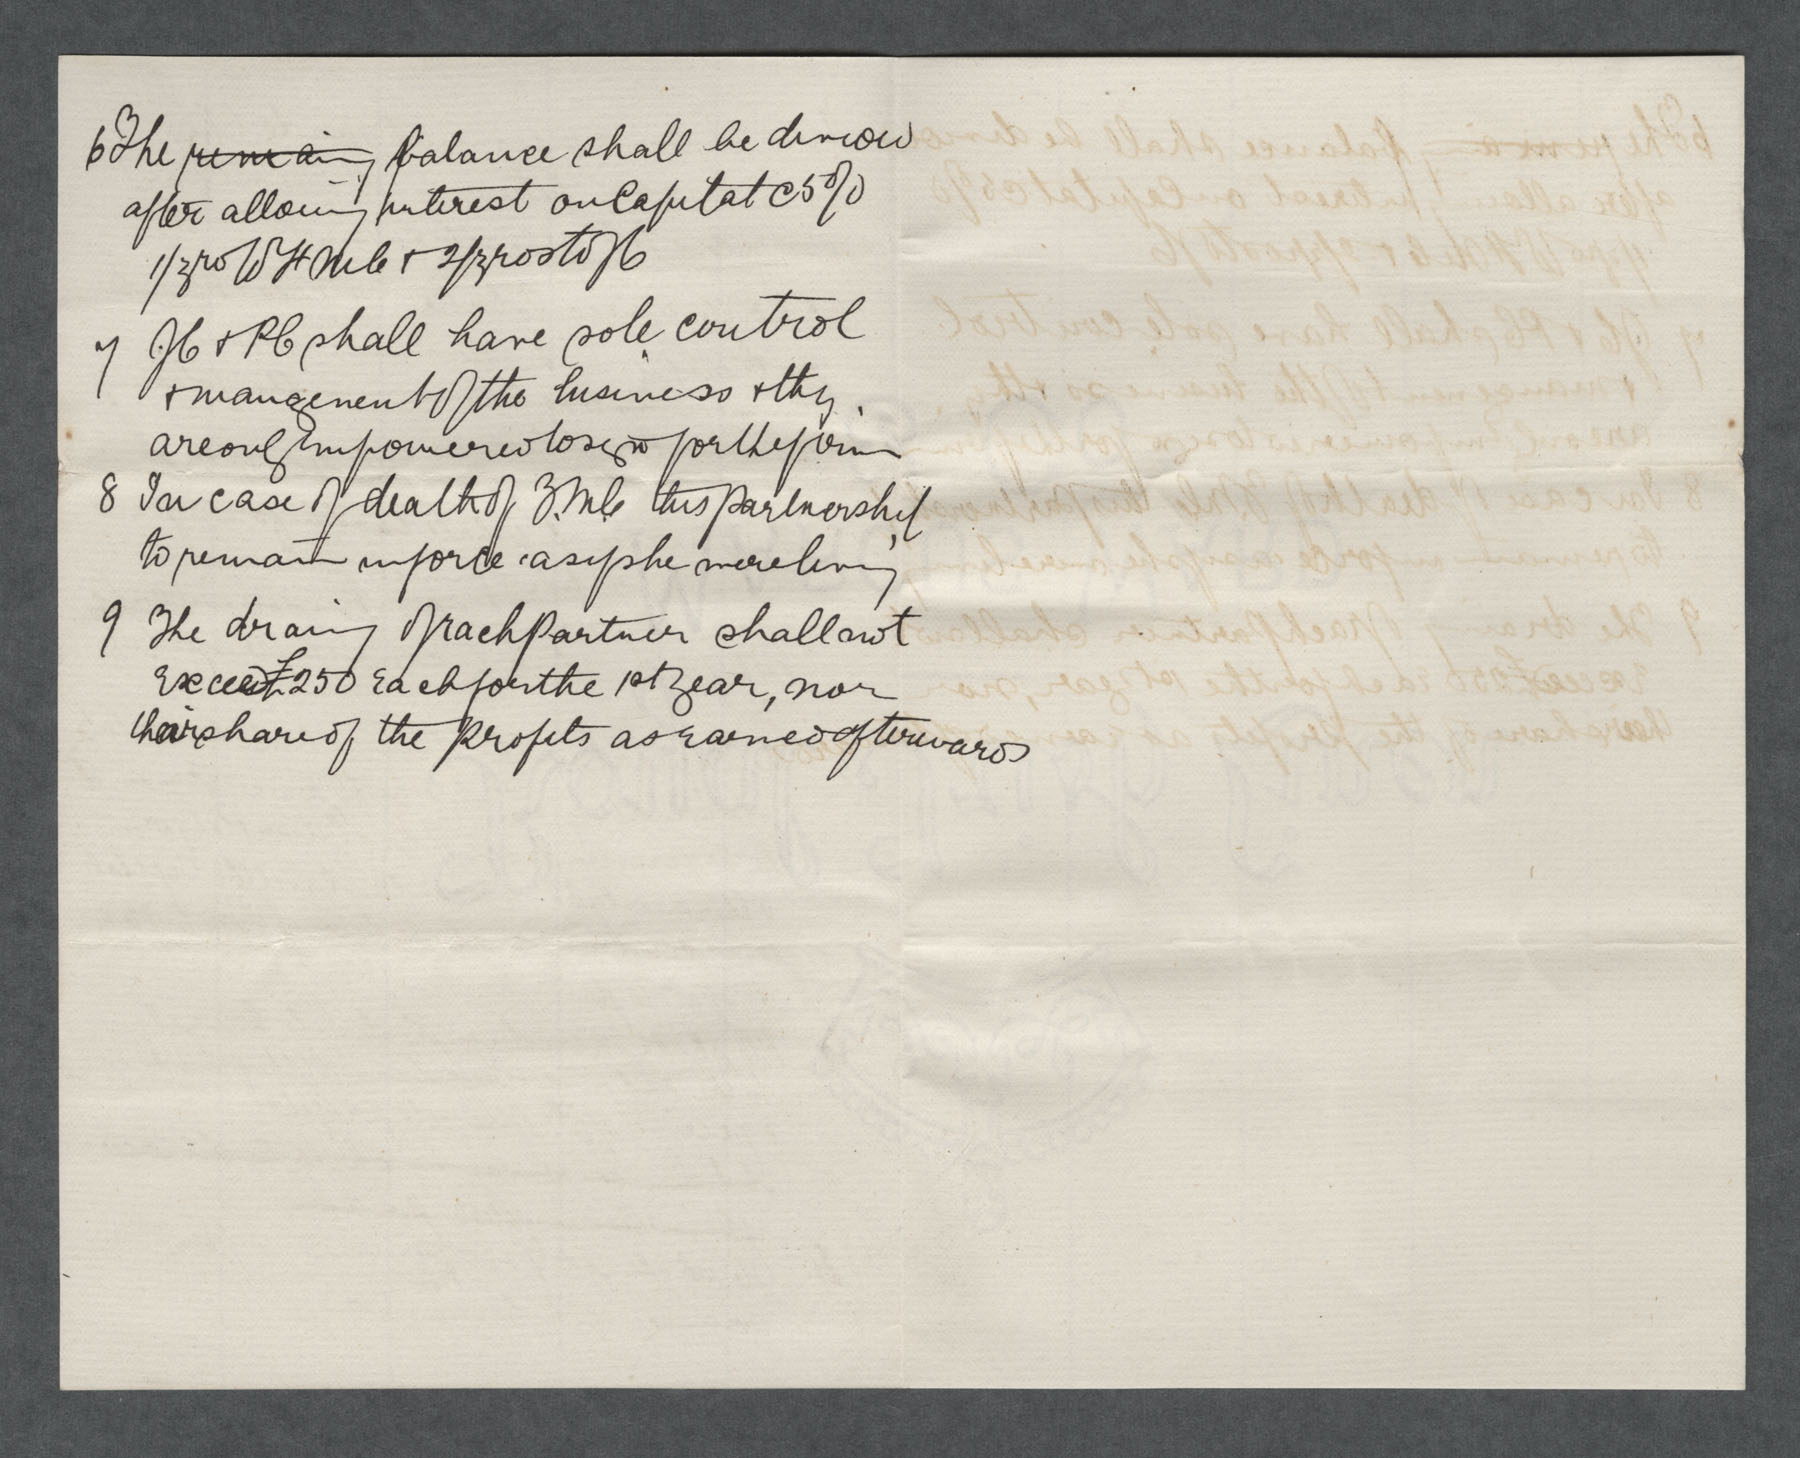 6 The remaing balance shall be divided
after allowing interest on Capital at C 5%
1/3rd to W H McC & 2/3rds to JC
7 JC & PC shall have sole control
& mangement of the business & thy
are only Empowered to sign for the firm
8 In case of death of McC this partnership
to remain in force as if she were living
9 The drawing of each Partner shall not
Exceed £250 Each for the 1st Year, nor
their share of the Profits as Earned afterwards